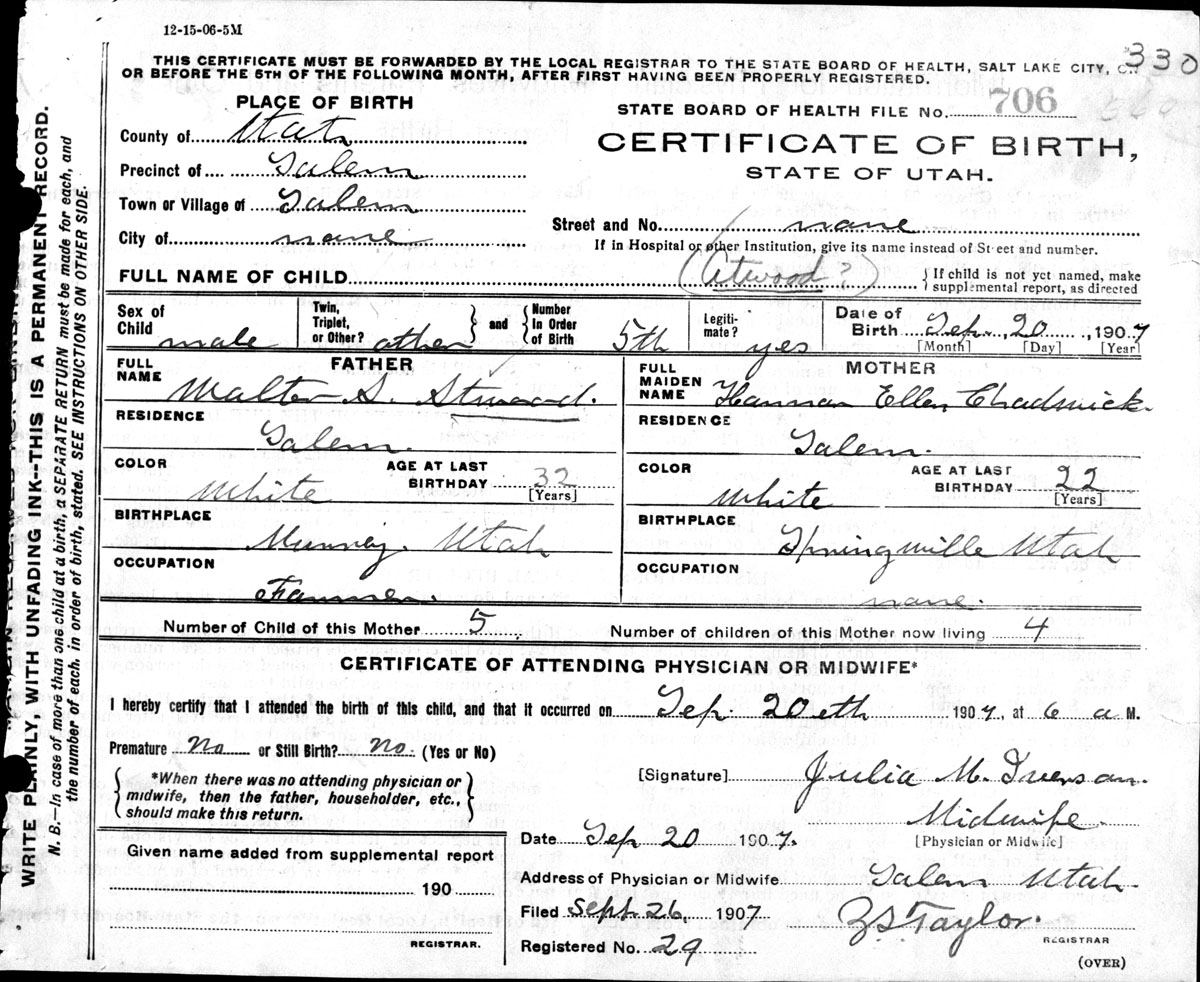 12-15-06-5M
330
THIS CERTIFICATE MUST BE FORWARDED BY THE LOCAL REGISTRAR TO THE STATE BOARD OF HEALTH, SALT LAKE CITY,
OR BEFORE THE 5TH OF THE FOLLOWING MONTH, AFTER FIRST HAVING BEEN PROPERLY REGISTERED.
PLACE OF BIRTH
County of Utah
Precinct of Salem
Town or Village of Salem
City of none
STATE BOARD OF HEALTH FILE No. 706
CERTIFICATE OF BIRTH,
STATE OF UTAH.
Street and No. none
If in Hospital or other Institution, give its name instead of Street and number.
FULL NAME OF CHILD (Atwood?)
If child is not yet named, make
supplemental report, as directed
Sex of Child male
Twin, Triplet, or Other? other
and Number In Order of Birth 5th
Legitimate? yes
Date of Birth Sep. 20, 1907
[Month] [Day] [Year]
FATHER
FULL NAME Walter S. Atwood.
RESIDENCE Salem.
COLOR White
AGE AT LAST BIRTHDAY 32
[Years]
BIRTHPLACE Murray. Utah
OCCUPATION Farmer.
MOTHER
FULL MAIDEN NAME Hannah Ellen Chadwick.
RESIDENCE Salem.
COLOR White
AGE AT LAST BIRTHDAY 22
[Years]
BIRTHPLACE Springville Utah
OCCUPATION none.
Number of Child of this Mother 5
Number of children of this Mother now living 4
CERTIFICATE OF ATTENDING PHYSICIAN OR MIDWIFE*
I hereby certify that I attended the birth of this child, and that it occurred on Sep. 20eth 1907, at 6 a M.
Premature No or Still Birth? No. (Yes or No)
*When there was no attending physician or
midwife, then the father, householder, etc.,
should make this return.
[Signature] Julia M. Iverson.
Midwife.
[Physician or Midwife]
Date Sep 20 1907.
Address of Physician or Midwife Salem Utah.
Filed Sept. 26, 1907
ZS Taylor.
REGISTRAR
Registered No. 29
(OVER)
Given name added from supplemental report
190
REGISTRAR.
WRITE PLAINLY, WITH UNFADING INK--THIS IS A PERMANENT RECORD.
N. B.—In case of more than one child at a birth, a SEPARATE RETURN must be made for each, and
the number of each, in order of birth, stated. SEE INSTRUCTIONS ON OTHER SIDE.